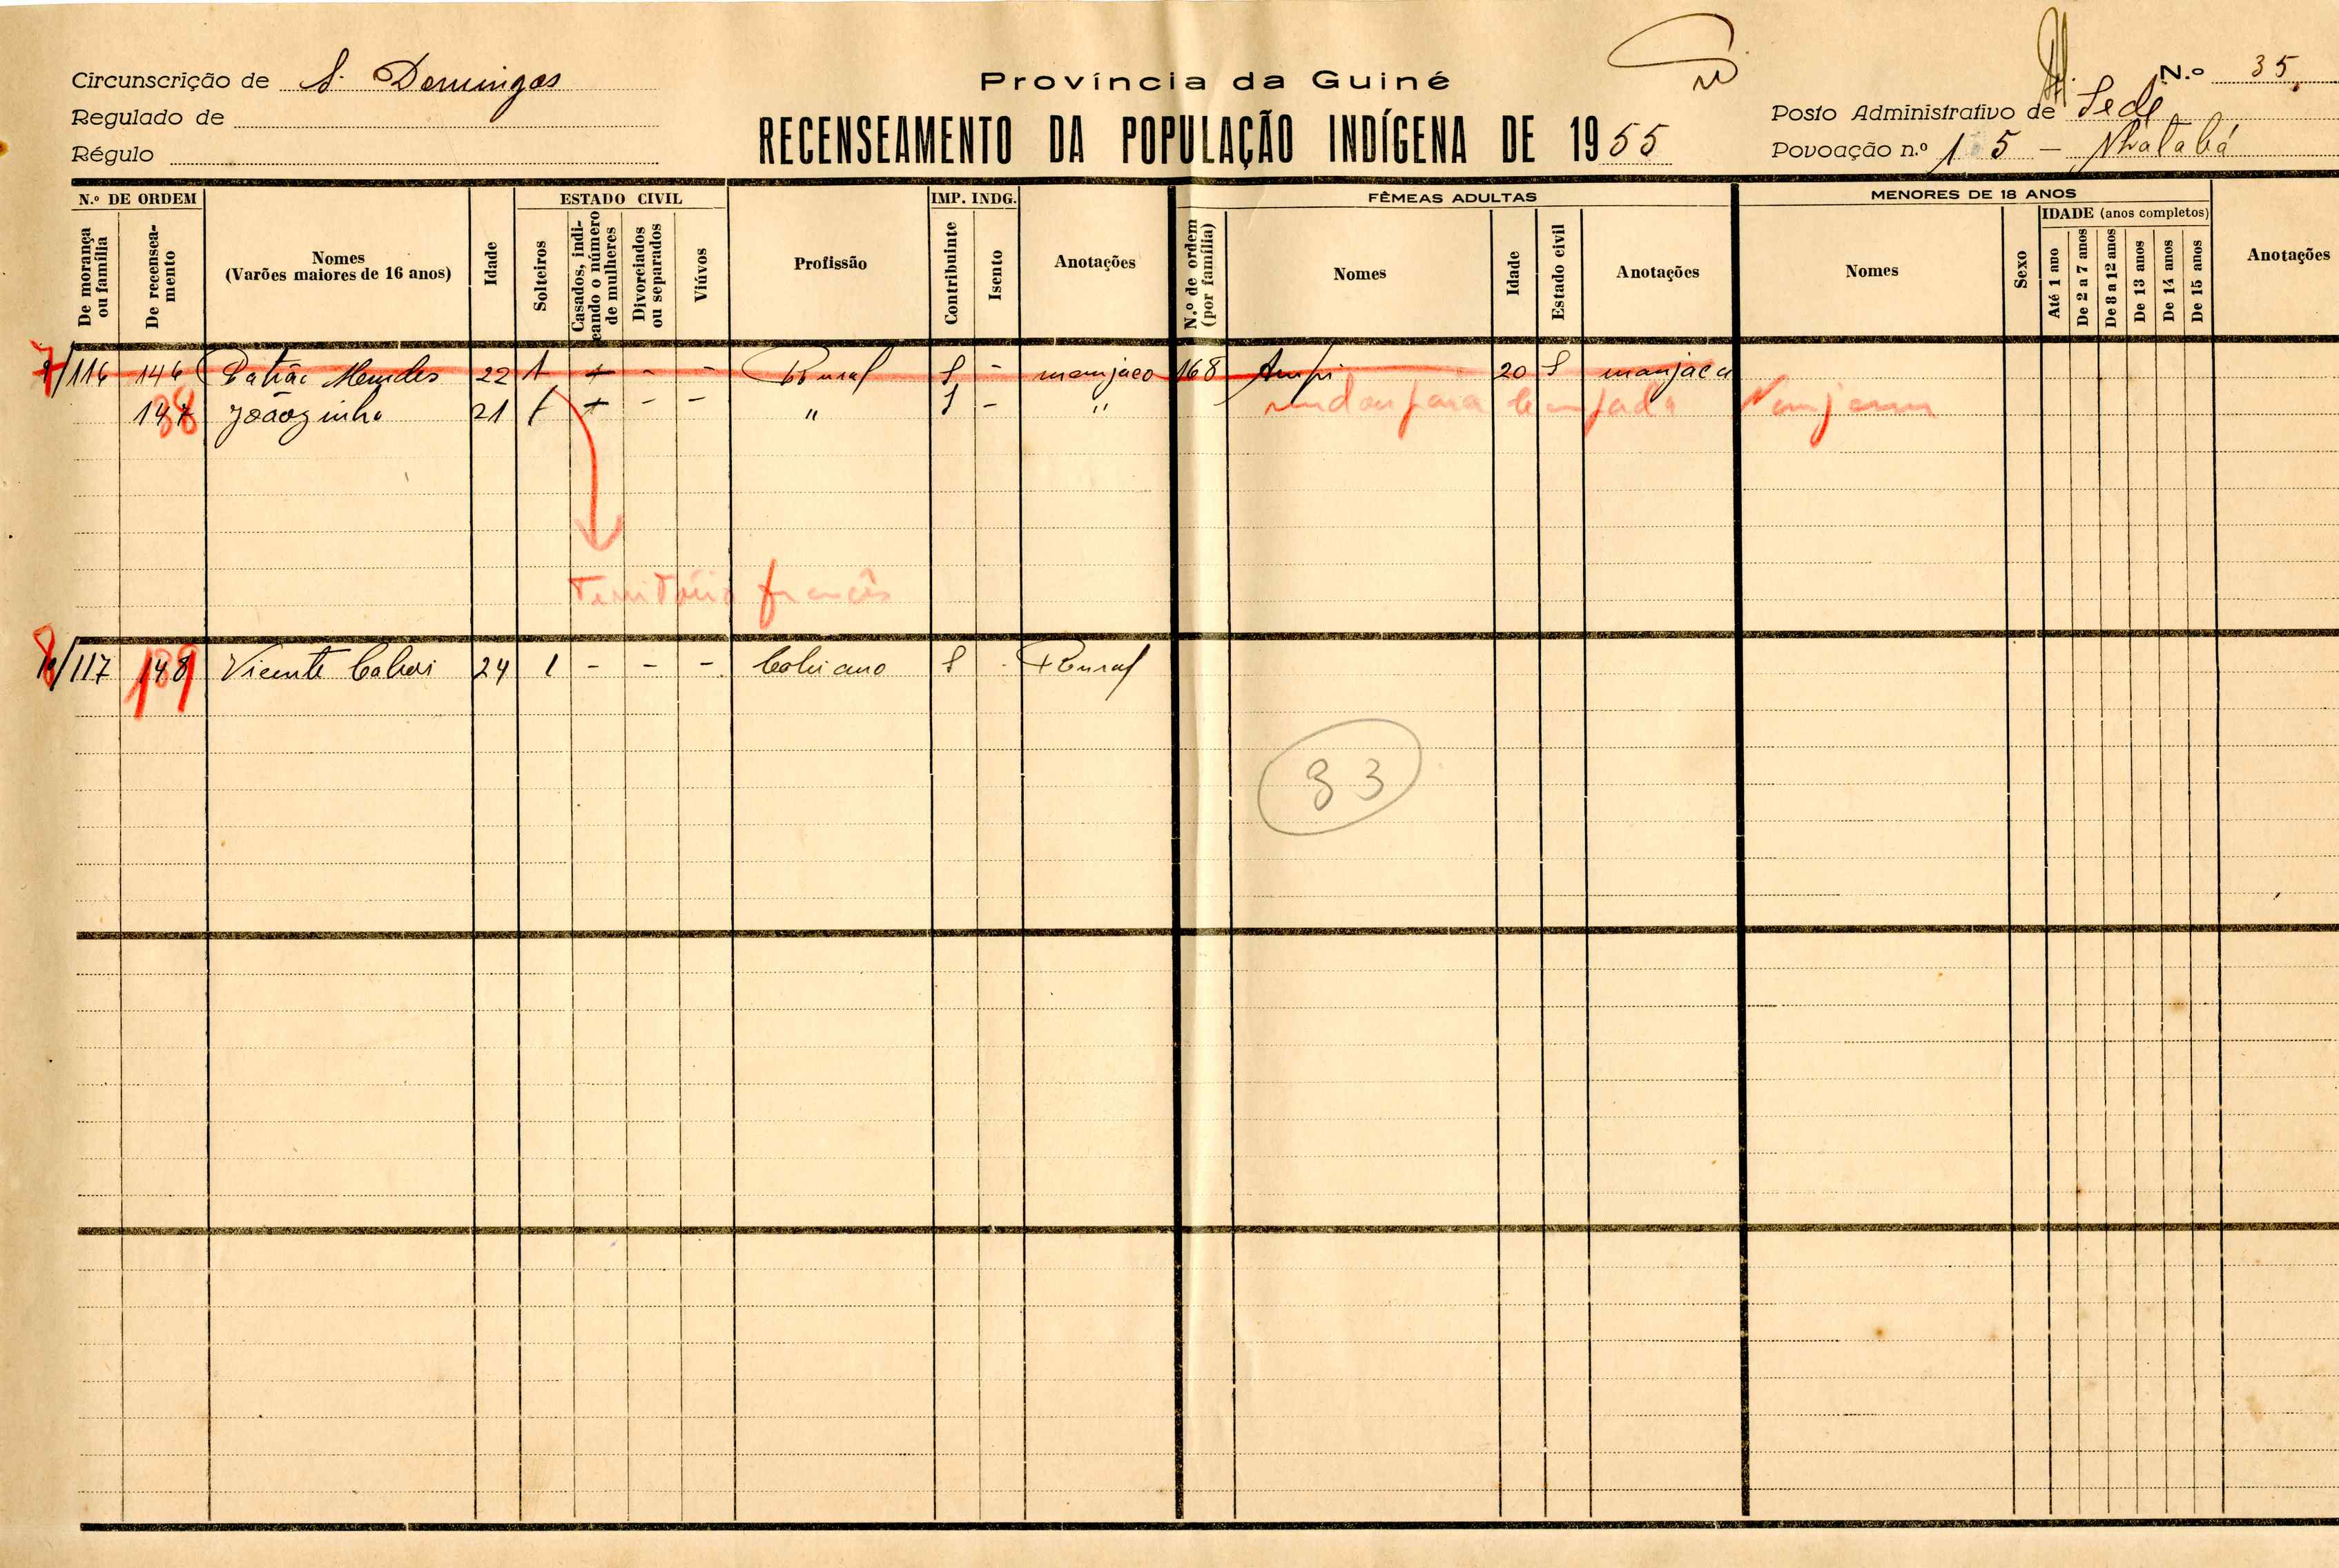 Província da Guiné
N.º 35
Circunscrição de S. Domingos
Regulado de
Régulo
RECENSEAMENTO DA POPULAÇÃO INDÍGENA DE 1955
Posto Administrativo de Sede
Povoação n.º 15 - Nhalabá
N.º DE ORDEM
De morança ou família
De recenseamento
Nomes
(Varões maiores de 16 anos)
Idade
ESTADO CIVIL
Solteiros
Casados, indicando o número de mulheres
Divorciados ou separados
Viúvos
Profissão
IMP. INDG.
Contribuinte
Isento
Anotações
FÊMEAS ADULTAS
N.º de ordem (por família)
Nomes
Idade
Estado civil
Anotações
MENORES DE 18 ANOS
Nomes
Sexo
IDADE (anos completos)
Até 1 ano
De 2 a 7 anos
De 8 a 12 anos
De 13 anos
De 14 anos
De 15 anos
Anotações
7/116 146 Patrão Mendes 22 1 - - Rural S - manjaco 168 Ampi 20 S manjaca
147 38 Joãozinho 21 1 - - " S - " mudou para
Território francês
8/117 148 139 Vicente 24 1 - - - S - Rural
83